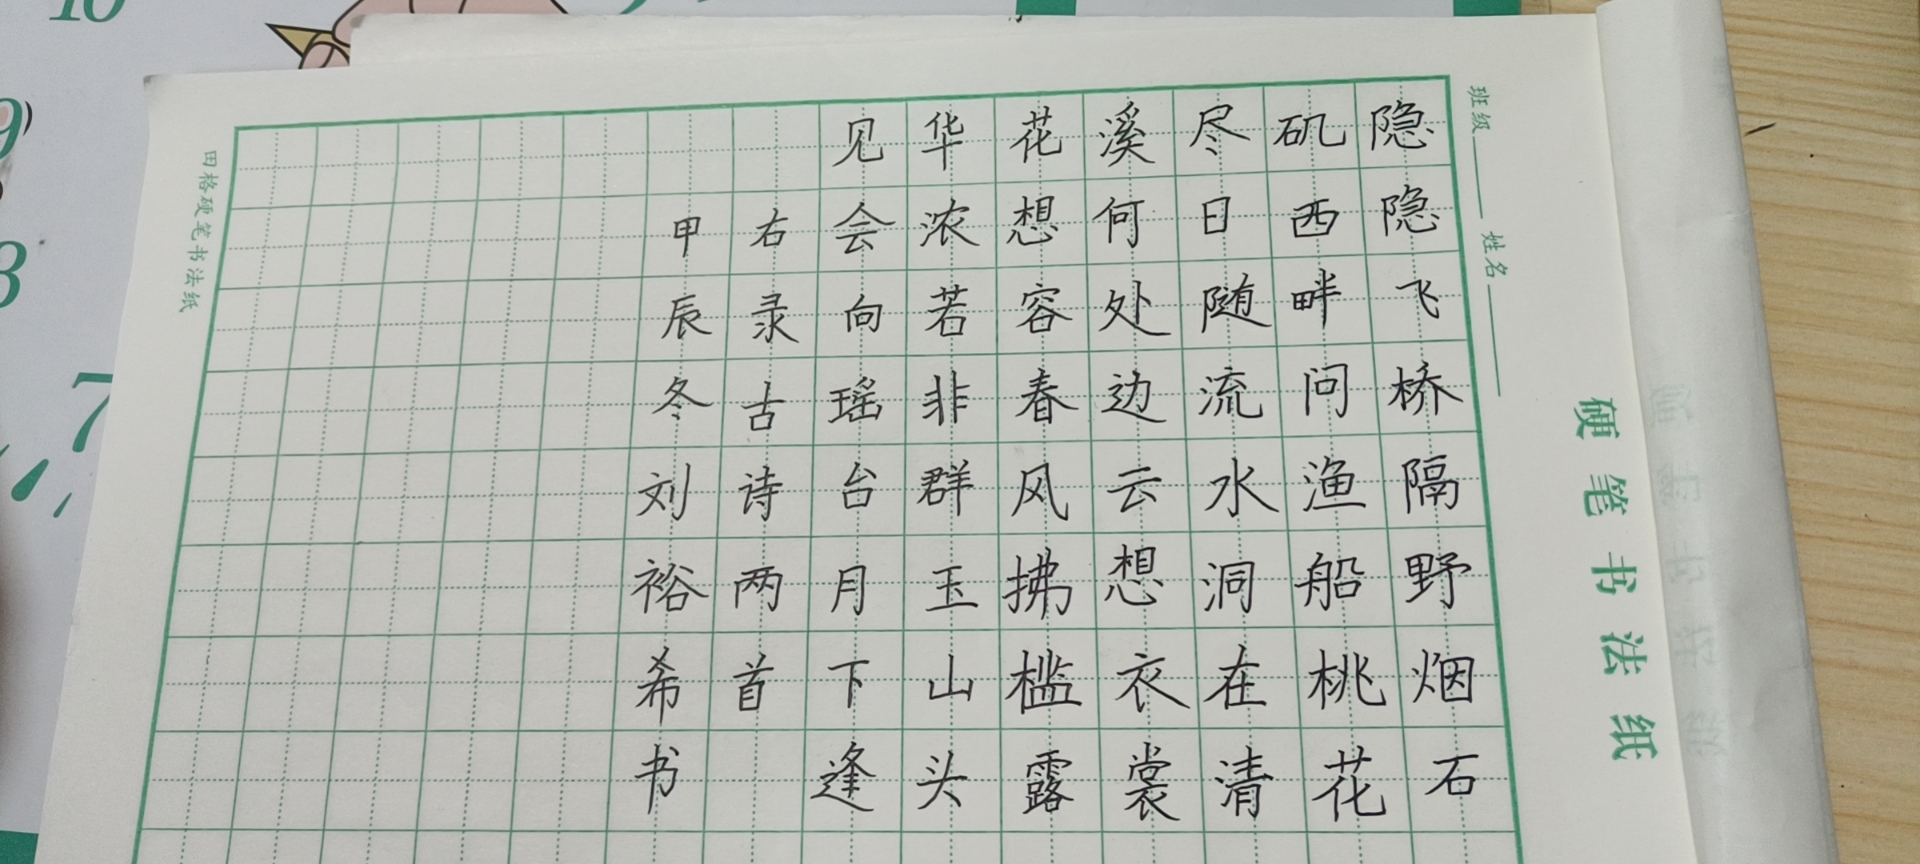 隐隐飞桥隔野烟石
矶西畔问渔船桃花
尽日随流水在清
溪何处边云想衣裳
花想容春风拂槛露
华浓若非群玉山头
见会向瑶台月下逢
右录古诗两首
甲辰冬刘裕希书
班级 姓名
硬笔书法纸
田格硬笔书法纸
10
9
8
7